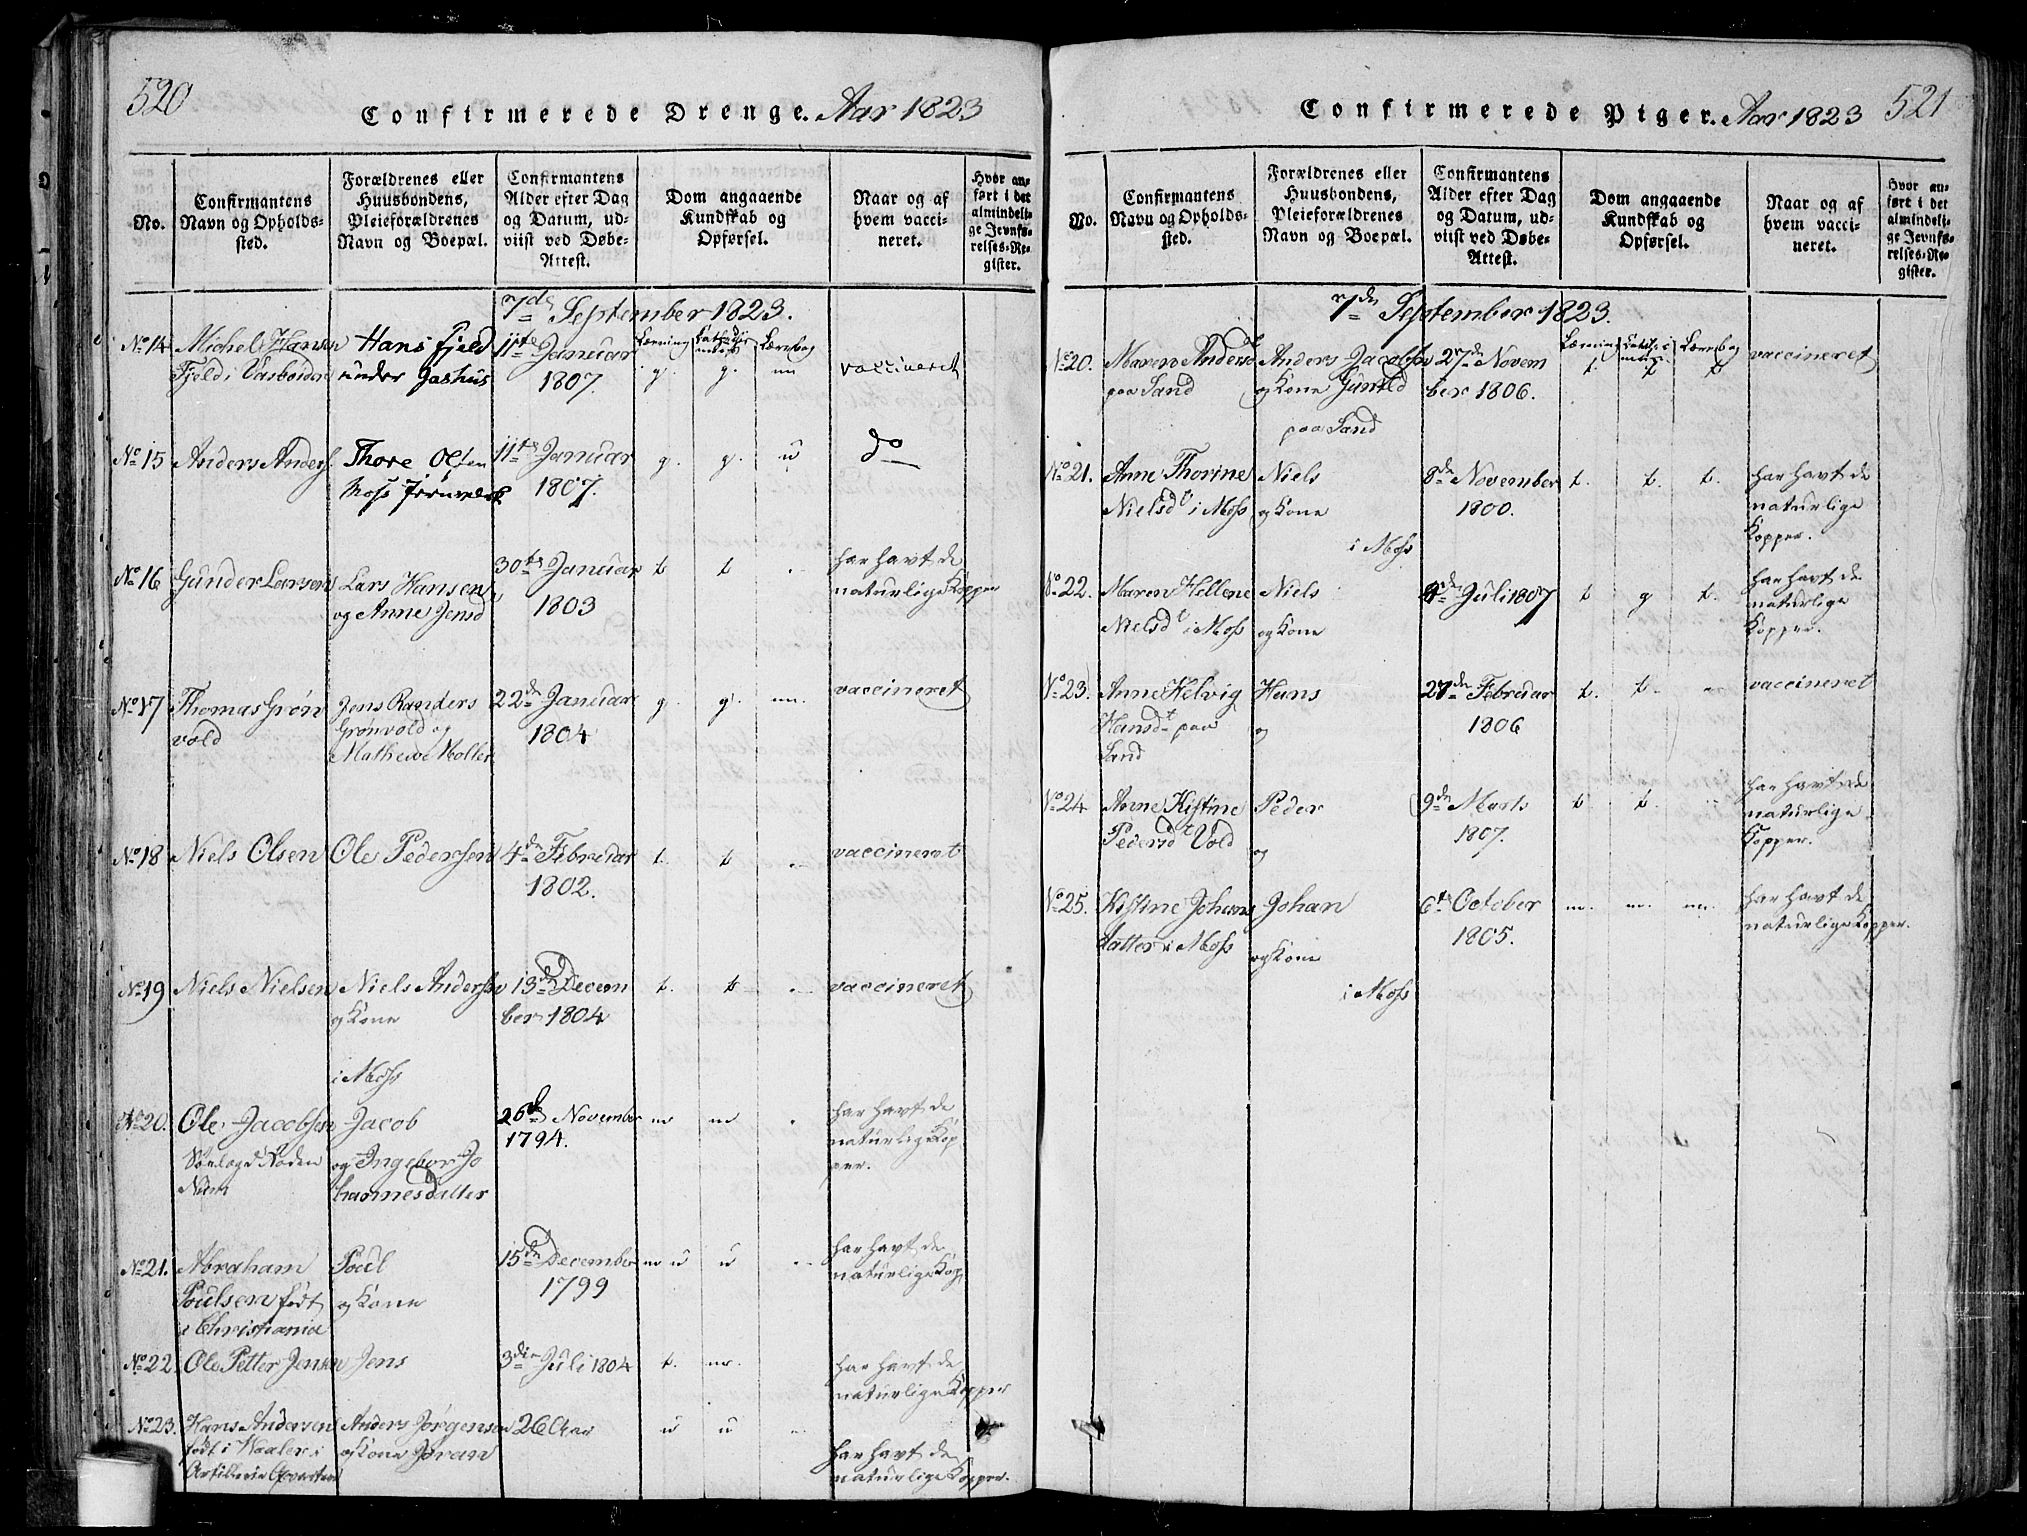 520
Confirmerede Drenge. Aar 1823
No.
Confirmantens
Navn og Opholds-
sted.
Forældrenes eller
Huusbondens,
Pleieforældrenes
Navn og Boepæl.
Confirmantens
Alder efter Dag
og Datum, ud-
viist ved Døbe-
Attest.
Dom angaaende
Kundskab og
Opførsel.
Naar og af
hvem vacci-
neret.
Hvor an-
ført i det
almindeli-
ge Jevnfø-
relses-Re-
gister.
7de September 1823.
No 14 Michel Hansen Hans Fjeld 11te Januar g. g. m vaccineret
Fjeld i under 1807.
No 15 Anders Anders. Thore Olsen 11te Januar g. g. u do
Moss Jernverk 1807.
No 16 Gunder Larsen Lars Hansen 30te Januar t t har havt de
og Anne Jensd 1803 naturlige Kopper
No 17 Thomas Grøn Jens Randers 22de Januar g. g. m. vaccineret
vold Grønvold og 1804
Mathewe Moller
No 18 Niels Olsen Ole Pedersen 4de Februar t. t vaccineret
1802.
No 19 Niels Nielsen Niels Anderssen 13de Decem t. t vaccineret
og Kone ber 1804
i Moss
No 20. Ole Jacobsen Jacob 26de November m m har havt de
og Ingebor Jo 1794. naturlige Kop
hannesdatter per.
No 21. Abraham Poul 15de December m u u har havt de
Poulsen født og Kone 1799 naturlige Kop
i Christiania
No 22. Ole Petter Jensen Jens 3die Juli 1804 t. m. har havt de
naturlige Kopper
No 23. Hans Andersen Anders Jørgensen 26 Aar u u har havt de
født i Waaler i og Kone Jøran naturlige Kopper.
Artillerie
Confirmerede Piger. Aar 1823 521
No.
Confirmantens
Navn og Opholds-
sted.
Forældrenes eller
Huusbondens,
Pleieforældrenes
Navn og Boepæl.
Confirmantens
Alder efter Dag
og Datum, ud-
viist ved Døbe-
Attest.
Dom angaaende
Kundskab og
Opførsel.
Naar og af
hvem vacci-
neret.
Hvor an-
ført i det
almindeli-
ge Jevnfø-
relses-Re-
gister.
7de September 1823.
No 20. Maren Andersd Anders Jacobsen 27de Novem t. t t vaccineret
paa Sand og Kone Gunild ber 1806.
paa Sand
No 21. Anne Thorine Niels 8de November t. t. t. har havt de
Nielsdt i Moss og Kone 1800. naturlige
i Moss Kopper.
No 22. Maren Hellene Niels Juli 1807 t g t. har havt de
Nielsdt i Moss og Kone naturlige
Kopper.
No 23. Anne Helvig Hans 27de Februar t. t. vaccineret
Hansdt paa og 1806
Sand
No 24 Anne Kistine Peder 9de Marts t. t. har havt de
Pedersdt Vold og 1807. naturlige
Kopper.
No 25. Kistine Johans Johan 6te October m. m. m. har havt de
datter i Moss og Kone 1805. naturlige Kopper.
i Moss